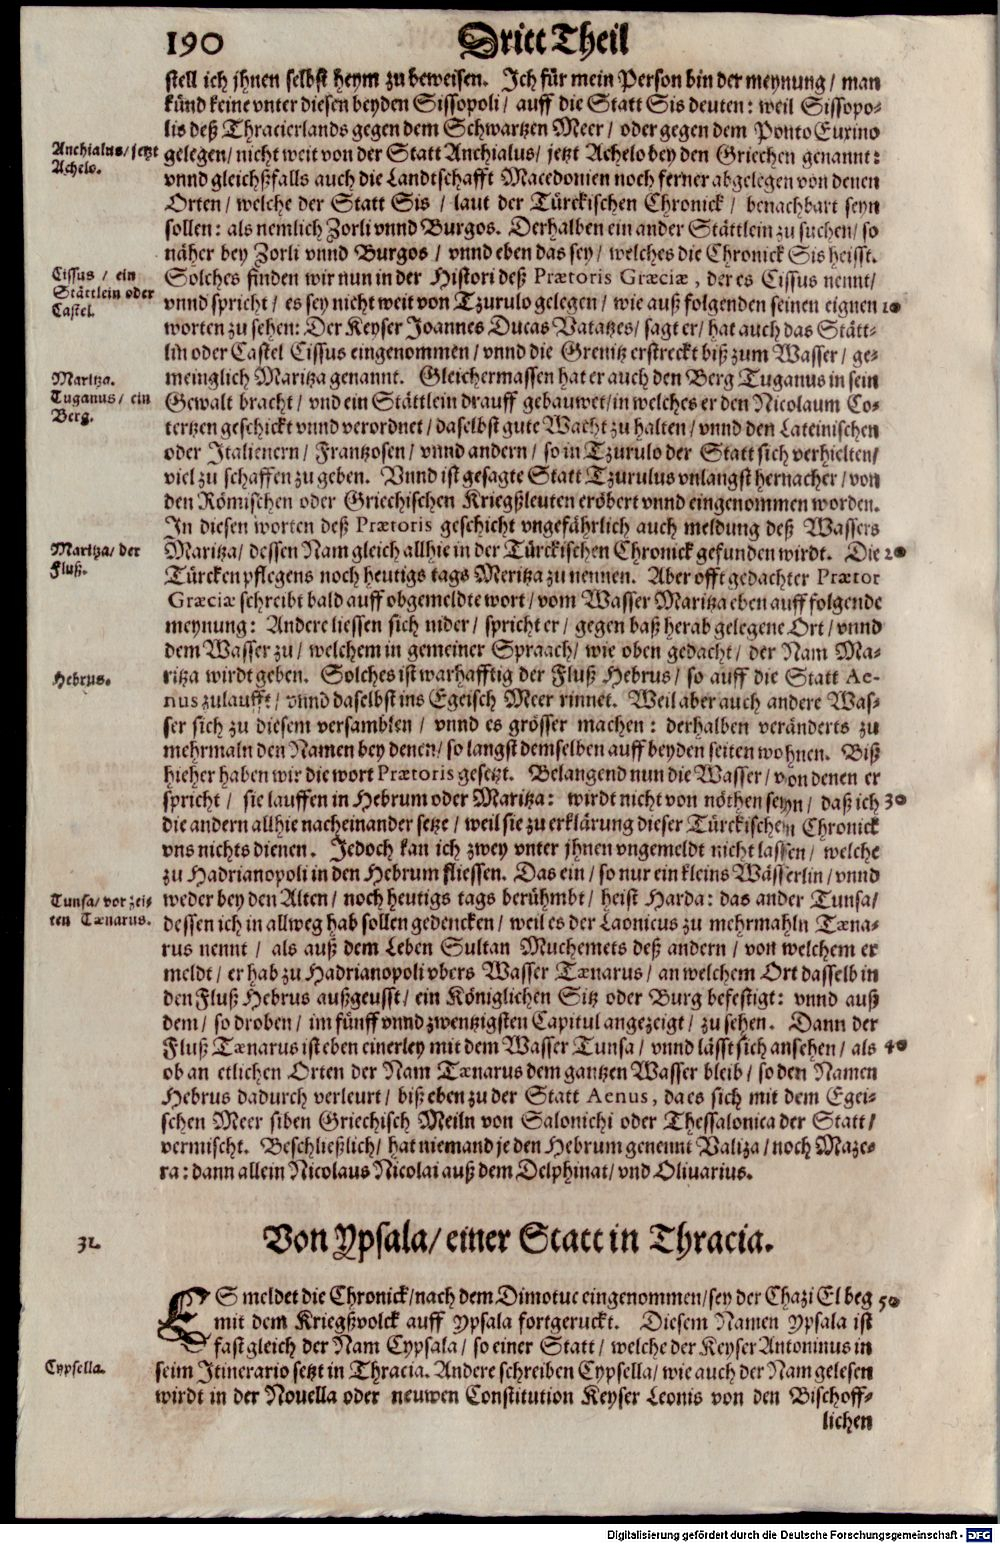 190 Dritt Theil
stell ich jhnen selbst heym zu beweisen. Ich für mein Person bin der meynung/ man
künd keine vnter diesen beyden Sissopoli/ auff die Statt Sis deuten: weil Sissopo-
lis deß Thracierlands gegen dem Schwartzen Meer/ oder gegen dem Ponto Euxino
Anchialus/ jetzt
Achelo.
gelegen/ nicht weit von der Statt Anchialus/ jetzt Achelo bey den Griechen genannt:
vnnd gleichßfalls auch die Landtschafft Macedonien noch ferner abgelegen von denen
Orten/ welche der Statt Sis/ laut der Türckischen Chronick/ benachbart seyn
sollen: als nemlich Zorli vnnd Burgos. Derhalben ein ander Stättlein zu suchen/ so
näher bey Zorli vnnd Burgos/ vnnd eben das sey/ welches die Chronick Sis heisst.
Cissus/ ein
Stättlein oder
Castel.
Solches finden wir nun in der Histori deß Prætoris Græciæ, der es Cissus nennt/
vnnd spricht/ es sey nicht weit von Tzurulo gelegen/ wie auß folgenden seinen eignen 10
worten zu sehen: Der Keyser Joannes Ducas Vatatzes/ sagt er/ hat auch das Stätt-
lin oder Castel Cissus eingenommen/ vnnd die Grenitz erstreckt biß zum Wasser/ ge-
Maritza.
Tuganus/ ein
Berg.
meinglich Maritza genannt. Gleichermassen hat er auch den Berg Tuganus in sein
Gewalt bracht/ vnd ein Stättlein drauff gebauwet/ in welches er den Nicolaum Co-
tertzen geschickt vnnd verordnet/ daselbst gute Wacht zu halten/ vnnd den Lateinischen
oder Italienern/ Frantzosen/ vnnd andern/ so in Tzurulo der Statt sich verhielten/
viel zu schaffen zu geben. Vnnd ist gesagte Statt Tzurulus vnlangst hernacher/ von
den Römischen oder Griechischen Kriegßleuten eröbert vnnd eingenommen worden.
In diesen worten deß Prætoris geschicht vngefährlich auch meldung deß Wassers
Maritza/ der
Fluß.
Maritza/ dessen Nam gleich allhie in der Türckischen Chronick gefunden wirdt. Die 20
Türcken pflegens noch heutigs tags Meritza zu nennen. Aber offt gedachter Prætor
Græciæ schreibt bald auff obgemeldte wort/ vom Wasser Maritza eben auff folgende
meynung: Andere liessen sich nider/ spricht er/ gegen baß herab gelegene Ort/ vnnd
dem Wasser zu/ welchem in gemeiner Spraach/ wie oben gedacht/ der Nam Ma-
Hebrus.
ritza wirdt geben. Solches ist warhafftig der Fluß Hebrus/ so auff die Statt Ae-
nus zulaufft/ vnnd daselbst ins Egeisch Meer rinnet. Weil aber auch andere Was-
ser sich zu diesem versamblen/ vnnd es grösser machen: derhalben veränderts zu
mehrmaln den Namen bey denen/ so langst demselben auff beyden seiten wohnen. Biß
hieher haben wir die wort Prætoris gesetzt. Belangend nun die Wasser/ von denen er
spricht/ sie lauffen in Hebrum oder Maritza: wirdt nicht von nöthen seyn/ daß ich 30
die andern allhie nacheinander setze/ weil sie zu erklärung dieser Türckischen Chronick
vns nichts dienen. Jedoch kan ich zwey vnter jhnen vngemeldt nicht lassen/ welche
zu Hadrianopoli in den Hebrum fliessen. Das ein/ so nur ein kleins Wässerlin/ vnnd
Tunsa/ vor zei-
ten Tænarus.
weder bey den Alten/ noch heutigs tags berühmbt/ heist Harda: das ander Tunsa/
dessen ich in allweg hab sollen gedencken/ weil es der Laonicus zu mehrmahln Tæna-
rus nennt/ als auß dem Leben Sultan Muchemets deß andern/ von welchem er
meldt/ er hab zu Hadrianopoli vbers Wasser Tænarus/ an welchem Ort dasselb in
den Fluß Hebrus außgeusst/ ein Königlichen Sitz oder Burg befestigt: vnnd auß
dem/ so droben/ im fünff vnnd zwentzigsten Capitul angezeigt/ zu sehen. Dann der
Fluß Tænarus ist eben einerley mit dem Wasser Tunsa/ vnnd lässt sich ansehen/ als 40
ob an etlichen Orten der Nam Tænarus dem gantzen Wasser bleib/ so den Namen
Hebrus dadurch verleurt/ biß eben zu der Statt Aenus, da es sich mit dem Egei-
schen Meer siben Griechisch Meiln von Salonichi oder Thessalonica der Statt/
vermischt. Beschließlich/ hat niemand je den Hebrum genennt Valiza/ noch Maze-
ra: dann allein Nicolaus Nicolai auß dem Delphinat/ vnd Oliuarius.
31. Von Ypsala/ einer Statt in Thracia.
ES meldet die Chronick/ nach dem Dimotuc eingenommen/ sey der Chazi El beg 50
mit dem Kriegßvolck auff Ypsala fortgeruckt. Diesem Namen Ypsala ist
fast gleich der Nam Cypsala/ so einer Statt/ welche der Keyser Antoninus in
Cypsella.
seim Itinerario setzt in Thracia. Andere schreiben Cypsella/ wie auch der Nam gelesen
wirdt in der Nouella oder neuwen Constitution Keyser Leonis von den Bischoff-
lichen
Digitalisierung gefördert durch die Deutsche Forschungsgemeinschaft - DFG